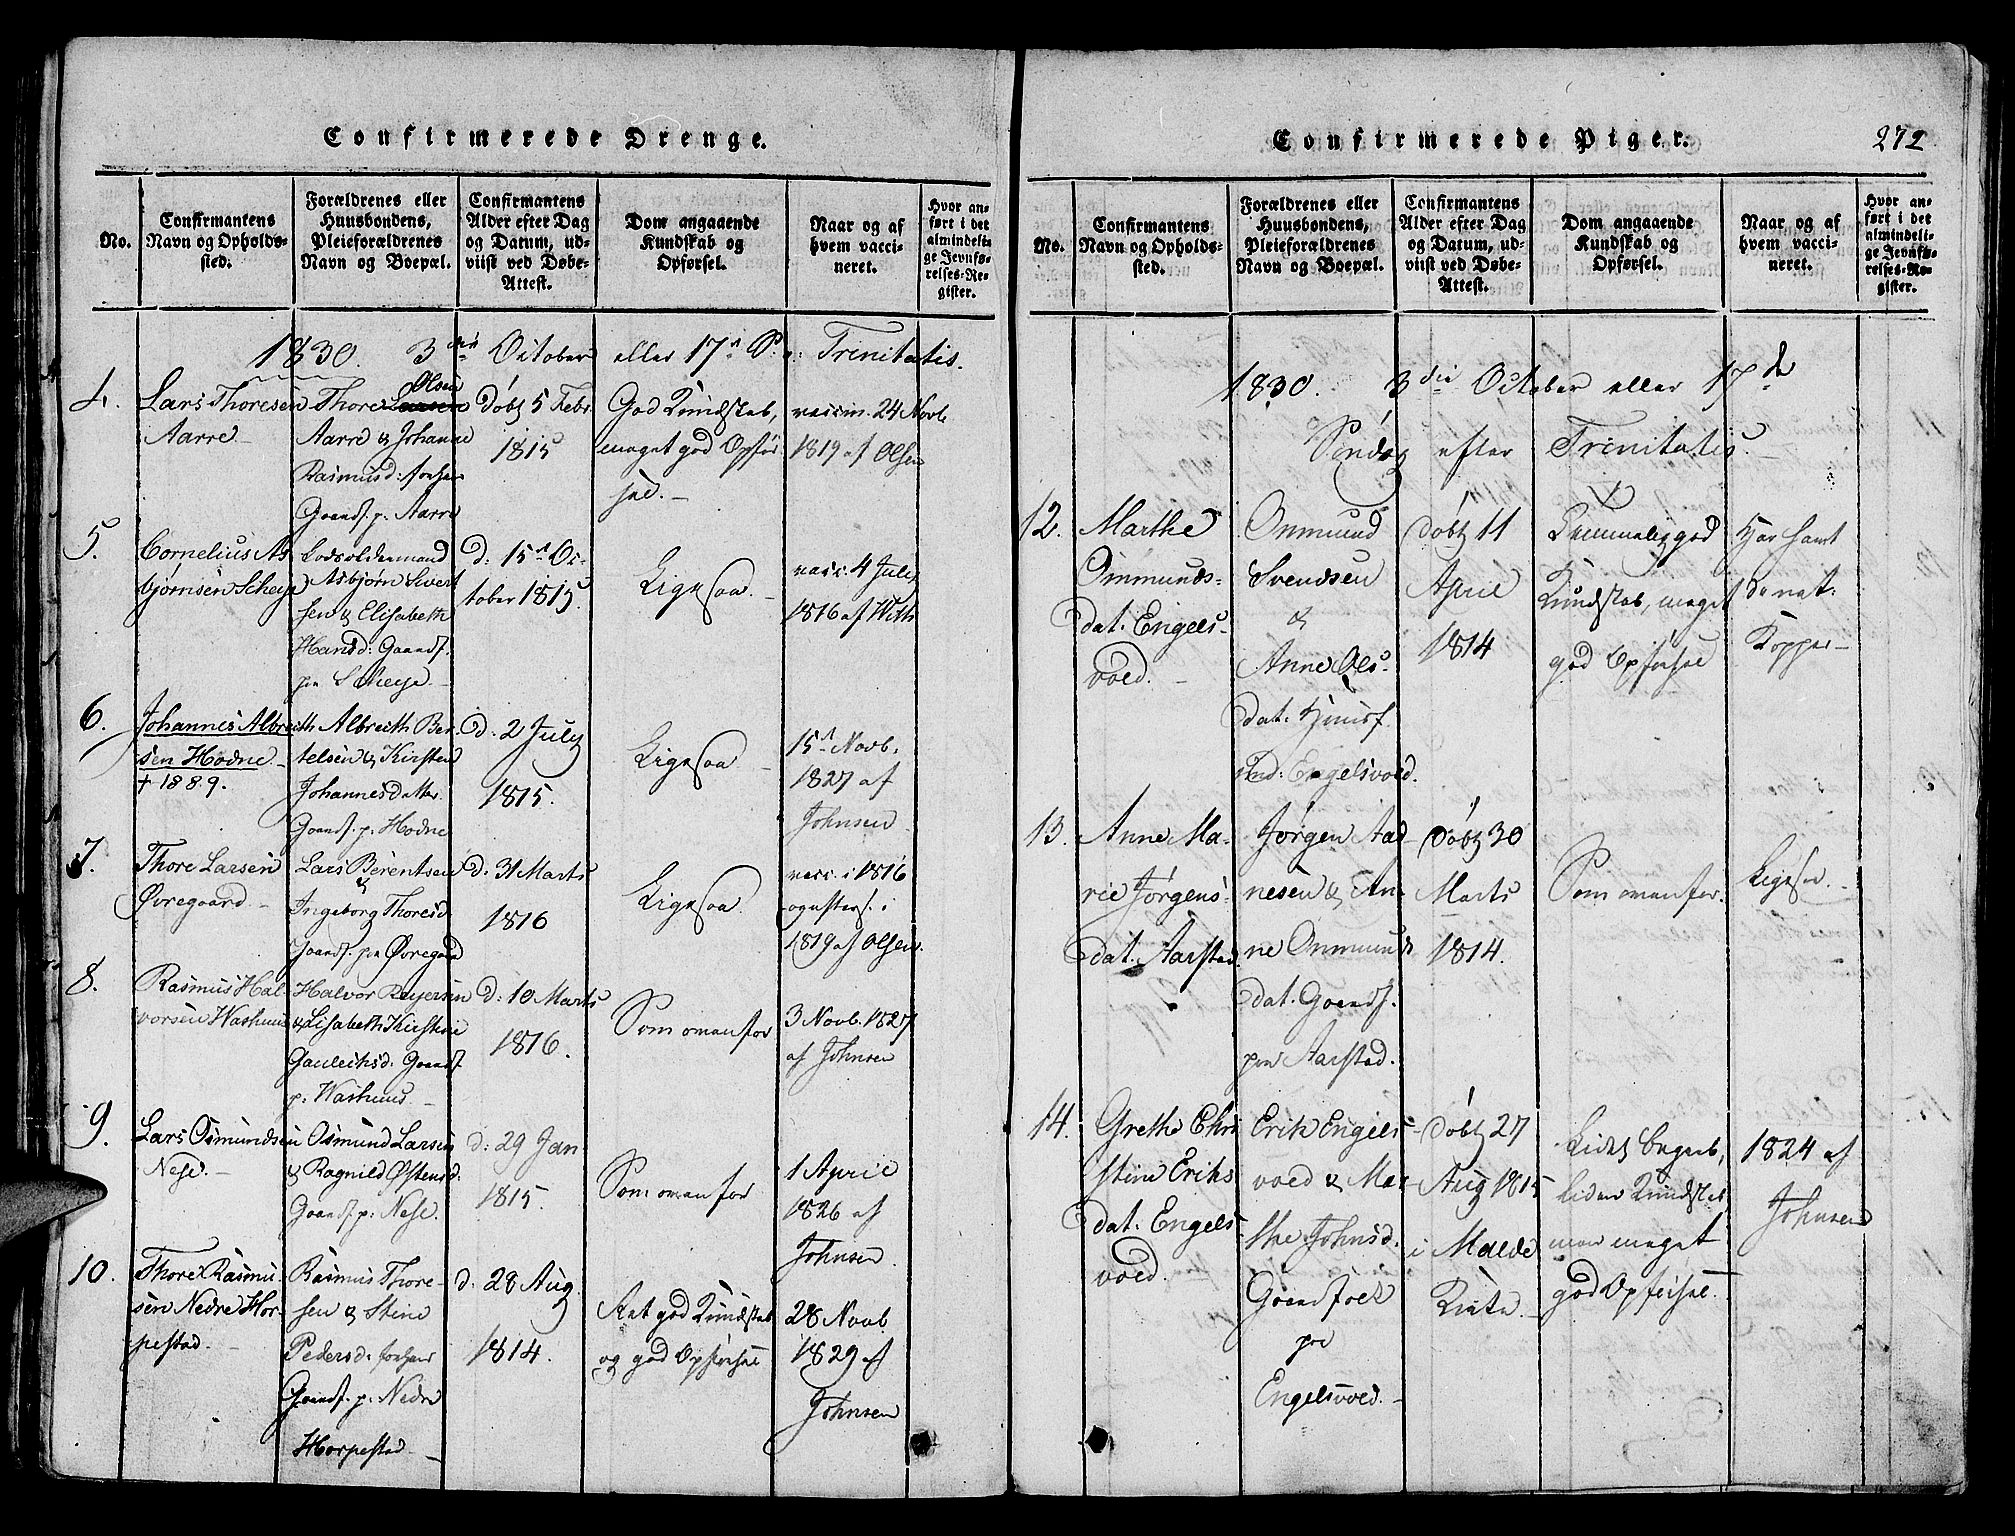 Confirmerede Drenge.
No.
Confirmantens
Navn og Opholds-
sted.
Forældrenes eller
Huusbondens,
Pleieforældrenes
Navn og Boepæl.
Confirmantens
Alder efter Dag
og Datum, ud-
viist ved Døbe-
Attest.
Dom angaaende
Kundskab og
Opførsel.
Naar og af
hvem vacci-
neret.
Hvor an-
ført i det
almindeli-
ge Jevnfø-
relses-Re-
gister.
1830. 3die October eller 17n S: e: Trinitatis.
4.
Lars Thoresen
Aarre
Thore Larsen
Olsen
Aarre & Johanne
Rasmusd: forhen
Gaardf. p. Aarre
Døbt 5 Febr
1815
God Kundskab,
meget god Opfør
sel.
vaccin. 24 Novb
1819 af Olsen
5.
Cornelius As
bjørnsen Scheye
Lodsoldermand
Asbjørn Sivert
sen & Elisabeth
Hansd: Gaardf.
paa Scheye
D: 15n Oc-
tober 1815.
Ligesaa.
vacc. 4 July
1816 af With
6.
Johannes Albreith
sen Hodne
† 1889.
Albreith Ber-
telsen & Kirsten
Johannesdatter
Gaardf. p. Hodne
D: 2 July
1815.
Ligesaa
15n Novb.
1827 af
Johnsen
7.
Thore Larsen
Øvregaard.
Lars Berentsen
&
Ingeborg Thoresd
Gaardf. paa Øvregaard
D: 31 Marts
1816
Ligesaa.
vacc. i 1816
og efters. i
1819 af Olsen.
8.
Rasmus Hal-
vorsen Washuus
Halvor Reyersen
& Lisabeth Kirstine
Gaulichsd: Gaardf.
p. Washuus
D: 10 Marts
1816.
Som ovenfor
3 Novb. 1827
af Johnsen
9.
Lars Osmundsen
Nese.
Osmund Larsen
& Ragnild Østensd.
Gaardf. p. Nese.
d: 29 Jan
1815.
Som ovenfor
1 April
1826 af
Johnsen
10.
Thore Rasmu-
sen Nedre Hor-
pestad.
Rasmus Thore-
sen & Stine
Pedersd: forhen
Gaardf. p. Nedre
Horpestad
d: 28 Aug.
1814.
god Kundskab
og god Opførsel
28 Novb
1829 af
Johnsen
Confirmerede Piger.
272
No.
Confirmantens
Navn og Opholds-
sted.
Forældrenes eller
Huusbondens,
Pleieforældrenes
Navn og Boepæl.
Confirmantens
Alder efter Dag
og Datum, ud-
viist ved Døbe-
Attest.
Dom angaaende
Kundskab og
Opførsel.
Naar og af
hvem vacci-
neret.
Hvor an-
ført i det
almindeli-
ge Jevnfø-
relses-Re-
gister.
1830. 3die October eller 17d
Søndag efter Trinitatis.
12.
Marthe
Ommunds-
dat. Engels-
vold.
Ommund
Svendsen
&
Anne Ols-
dat. Huusf.
Engelsvold.
Døbt 11
April
1814
god
Kundskab, meget
god Opførsel
Har havt
de nat.
Kopper
13.
Anne Ma-
rie Jørgens-
dat. Aarstad.
Jørgen Aad-
nesen & An-
ne Ommunds
dat. Gaardf.
paa Aarstad.
Døbt 30
Marts
1814.
Som ovenfor.
Ligesaa.
14.
Grethe Chri
stine Eriks
dat. Engels-
vold.
Erik Engels-
vold & Mar-
the Johnsd.
Gaardfolk
paa
Engelsvold.
Døbt 27
Aug 1815
i Malde
Kirke
Lidet Begreb,
liden Kundskab,
men meget
god Opførsel.
1824 af
Johnsen